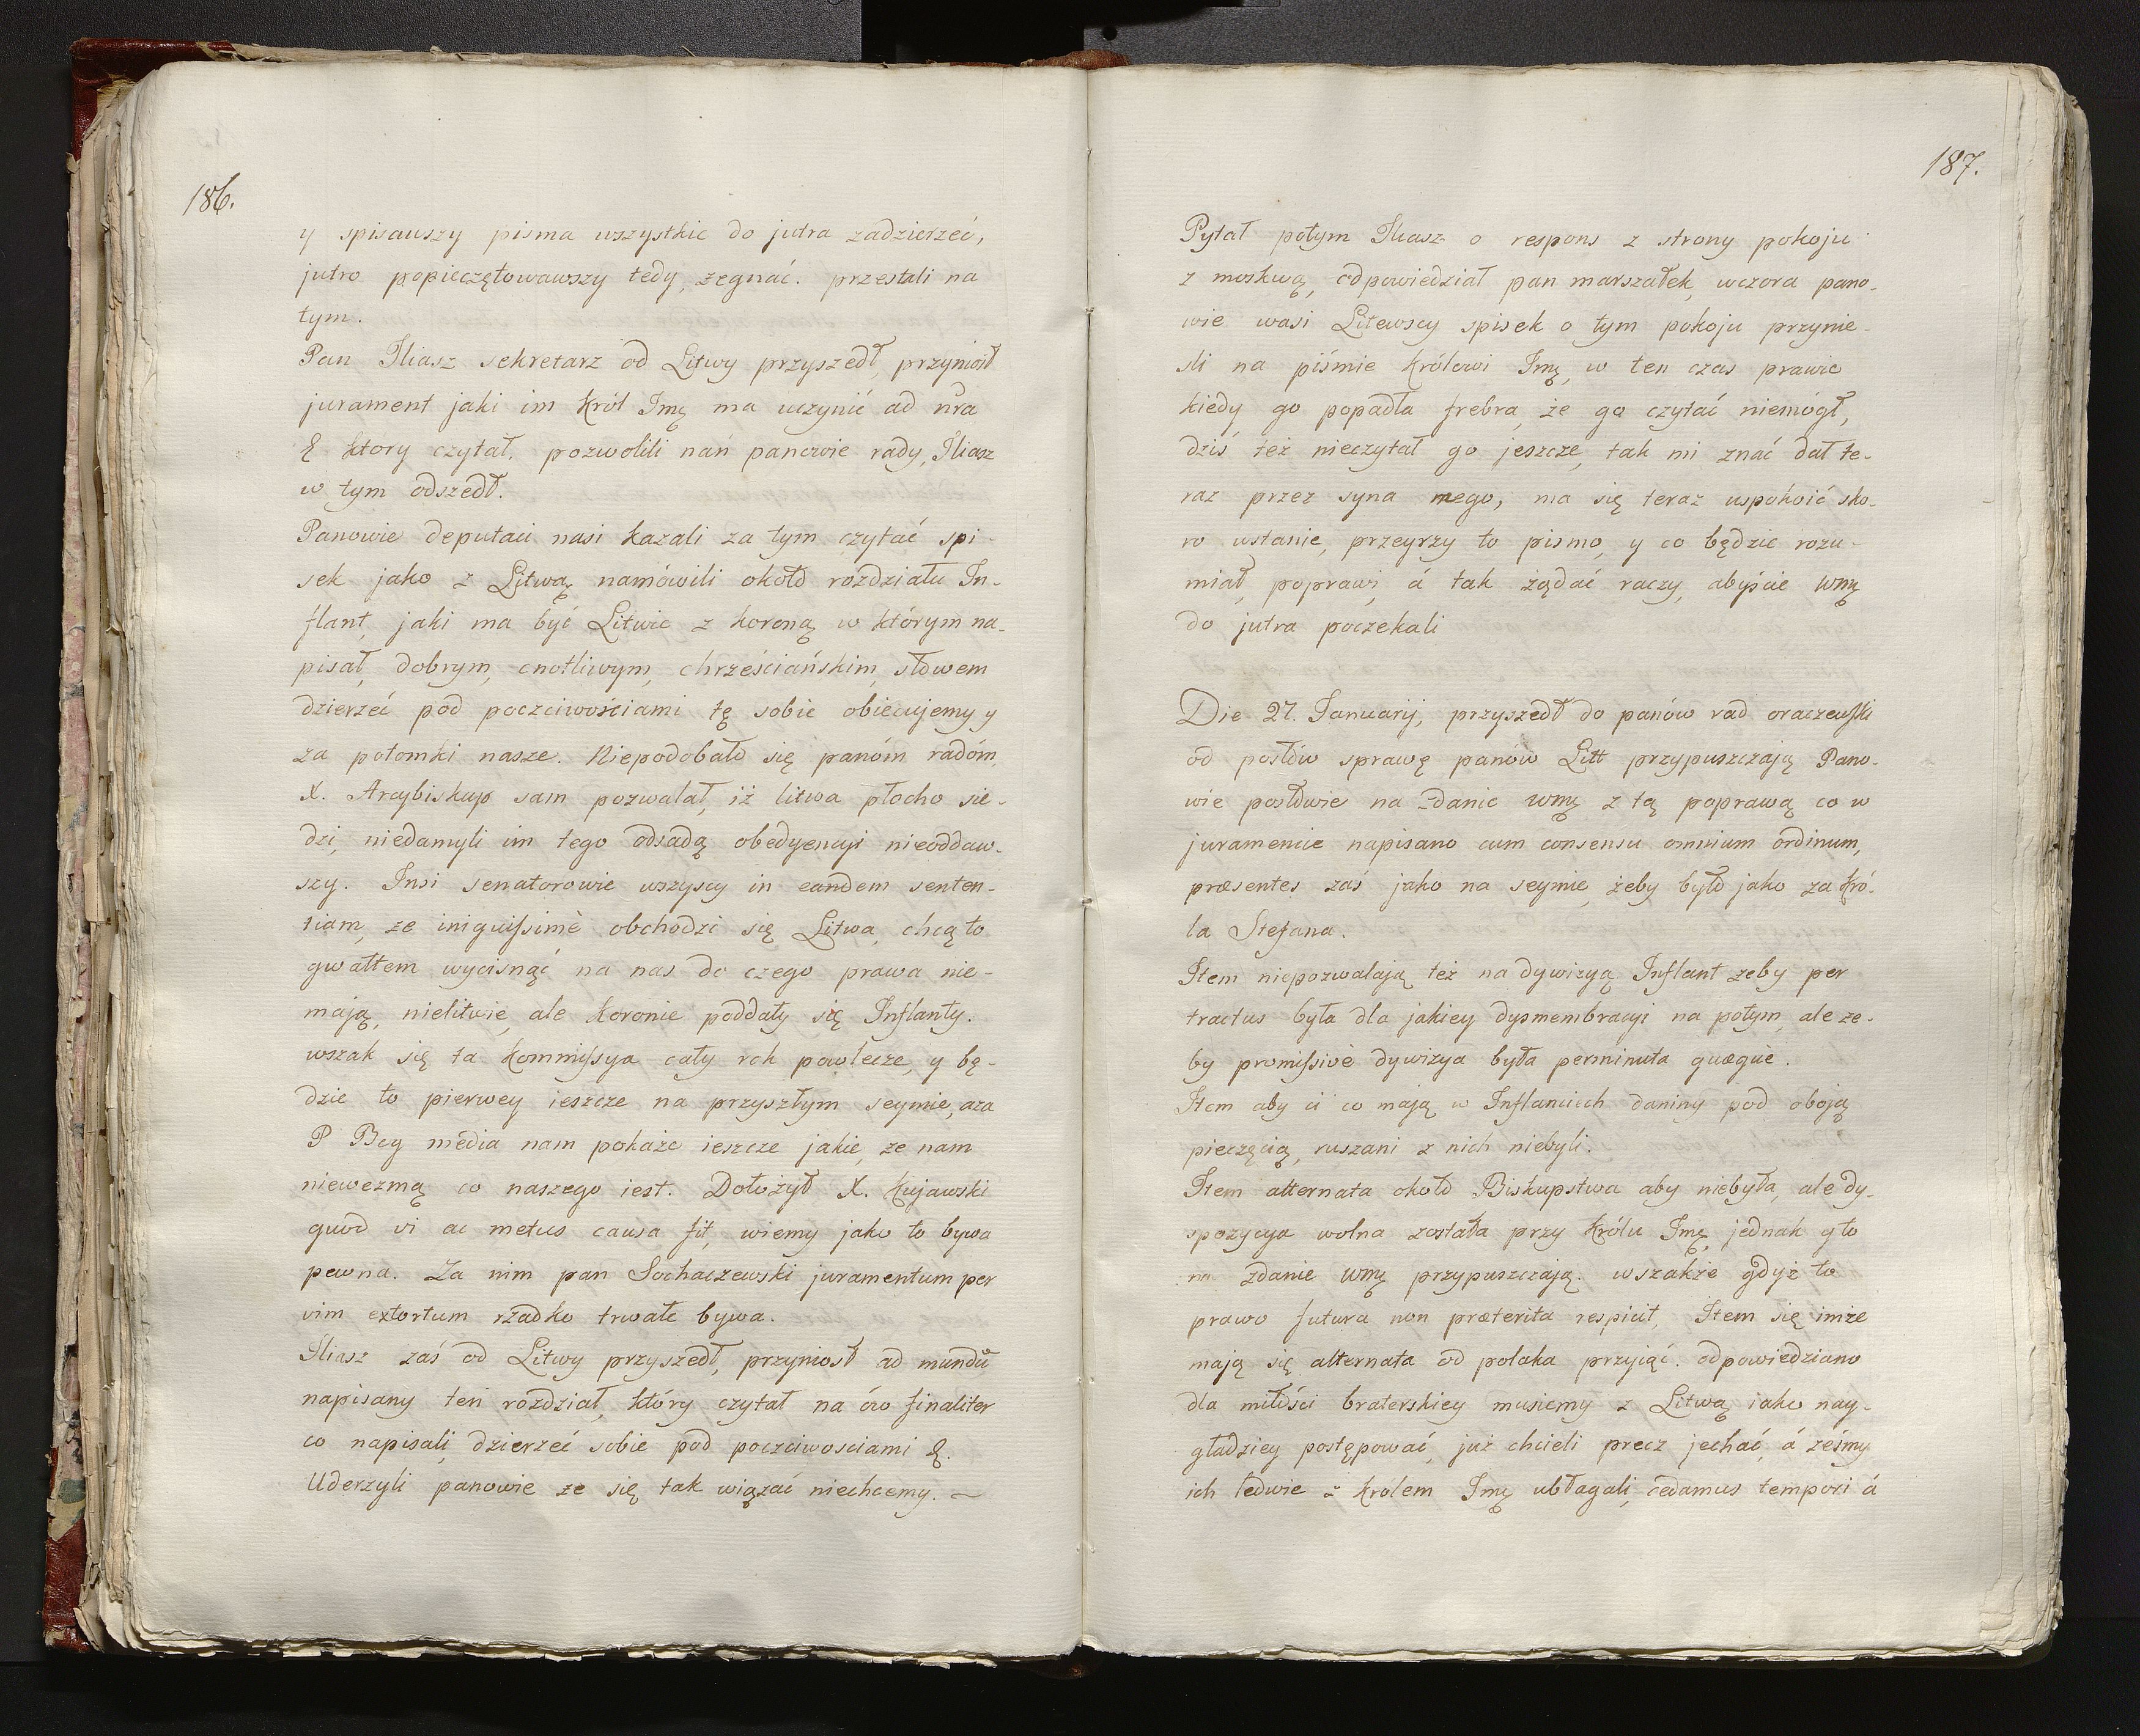 186.
y spisawszy pisma wszystkie do jutra zadzierzeć,
jutro popieczętowawszy tedy, żegnać. przestali na
tym.
Pan Iliasz sekretarz od Litwy przyszedł, przyniosł
jurament jaki im Król Jmę ma uczynić ad
ktory czytał, pozwolili nań panowie rady, Iliasz
w tym odszedł.
Panowie deputaci nasi kazali za tym czytać spi-
sek jako z Litwą namówili około rozdziału In-
flant, jaki ma być Litwie z koroną w którym na-
pisał, dobrym, cnotliwym, chrześciańskim, słowem
dzierzeć pod poczciwościami tę sobie obiecujemy y
za potomki nasze. Niepodobało się panóm radóm,
X. Arcybiskup sam pozwalał, iż litwa płocho sie-
dzi, niedamyli im tego odsadą obedyencyi nieoddaw-
szy. Insi senatorowie wszyscy in eandem senten-
tiam, ze iniquissimè obchodzi się Litwa, chcą to
gwałtem wycisnąć na nas do czego prawa nie-
mają, nielitwie, ale Koronie poddały się Inflanty.
wszak się ta kommissya cały rok powlecze, y bę-
dzie to pierwey ieszcze na przyszłym seymie, aza
P Bog media nam pokaże ieszcze jakie, ze nam
niewezmą co naszego iest. Dołożył X. Kujawski
quod vi ac metus causa fit, wiemy jako to bywa
pewna. Za nim pan Sochaczewski juramentum per
vim extortum rzadko trwałe bywa.
Iliasz zaś od Litwy przyszedł, przyniosł ad mundu
napisany ten rozdział, który czytał na ów finaliter
co napisali dzierzeć sobie pod poczciwosciami &.
Uderzyli panowie ze się tak wiązać niechcemy. –
187.
Pytał potym Iliasz o respons z strony pokoju
z moskwą, odpowiedział pan marszałek, wczora pano-
wie wasi Litewscy spisek o tym pokoju przynie-
śli na piśmie Królowi Jmę, w ten czas prawie
kiedy go popadła frebra, że go czytać niemógł,
dziś też nieczytał go jeszcze, tak mi znać dał te-
raz przez syna mego, ma się teraz uspokoić sko-
ro wstanie, przeyrzy to pismo, y co będzie rozu-
miał, poprawi, á tak żądać raczy, abyście wmę
do jutra poczekali
Die 27. Januarij, przyszedł do panów rad oraczewski
od posłów sprawę panów Litt przypuszczają Pano-
wie posłowie na zdanie wmę z tą poprawą co w
juramencie napisano cum consensu omnium ordinum,
præsentes zaś jako na seymie, żeby było jako za Kró-
la Stefana.
Item niepozwalają też na dywizyą Inflant zeby per
tractus była dla jakiey dysmembracyi na potym, ale ze-
by promissivè dywizya była perminuta quæque.
Item aby ci co mają w Inflanciech daniny pod oboją
pieczęcią, ruszani z nich niebyli.
Item alternata około Biskupstwa aby niebyła, ale dy-
spozycya wolna została przy Królu Jmę, jednak y to
na zdanie wmę przypuszczają. wszakże gdyż to
prawo futura non præterita respicit, Item się imże
mają się alternata od polaka przyjąć. odpowiedziano
dla miłości braterskiey musiemy z Litwą iako nay-
gładziey postępować, już chcieli precz jechać, á żeśmy
ich ledwie z Królem Jmę ubłagali, cedamus tempori á